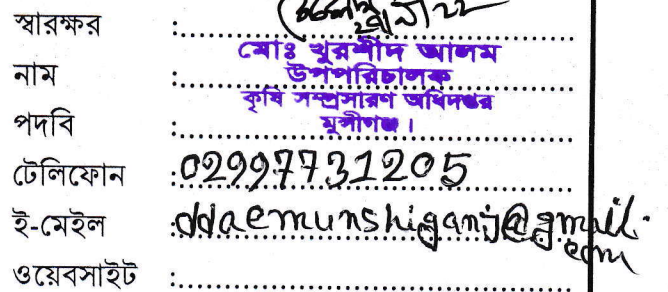 স্বাক্ষর :
মোঃ খুরশীদ আলম
নাম : উপপরিচালক
কৃষি সম্প্রসারণ অধিদপ্তর
পদবি : মুন্সীগঞ্জ।
টেলিফোন : 02997731205
ই-মেইল : ddaemunshiganj@gmail.
com
ওয়েবসাইট :